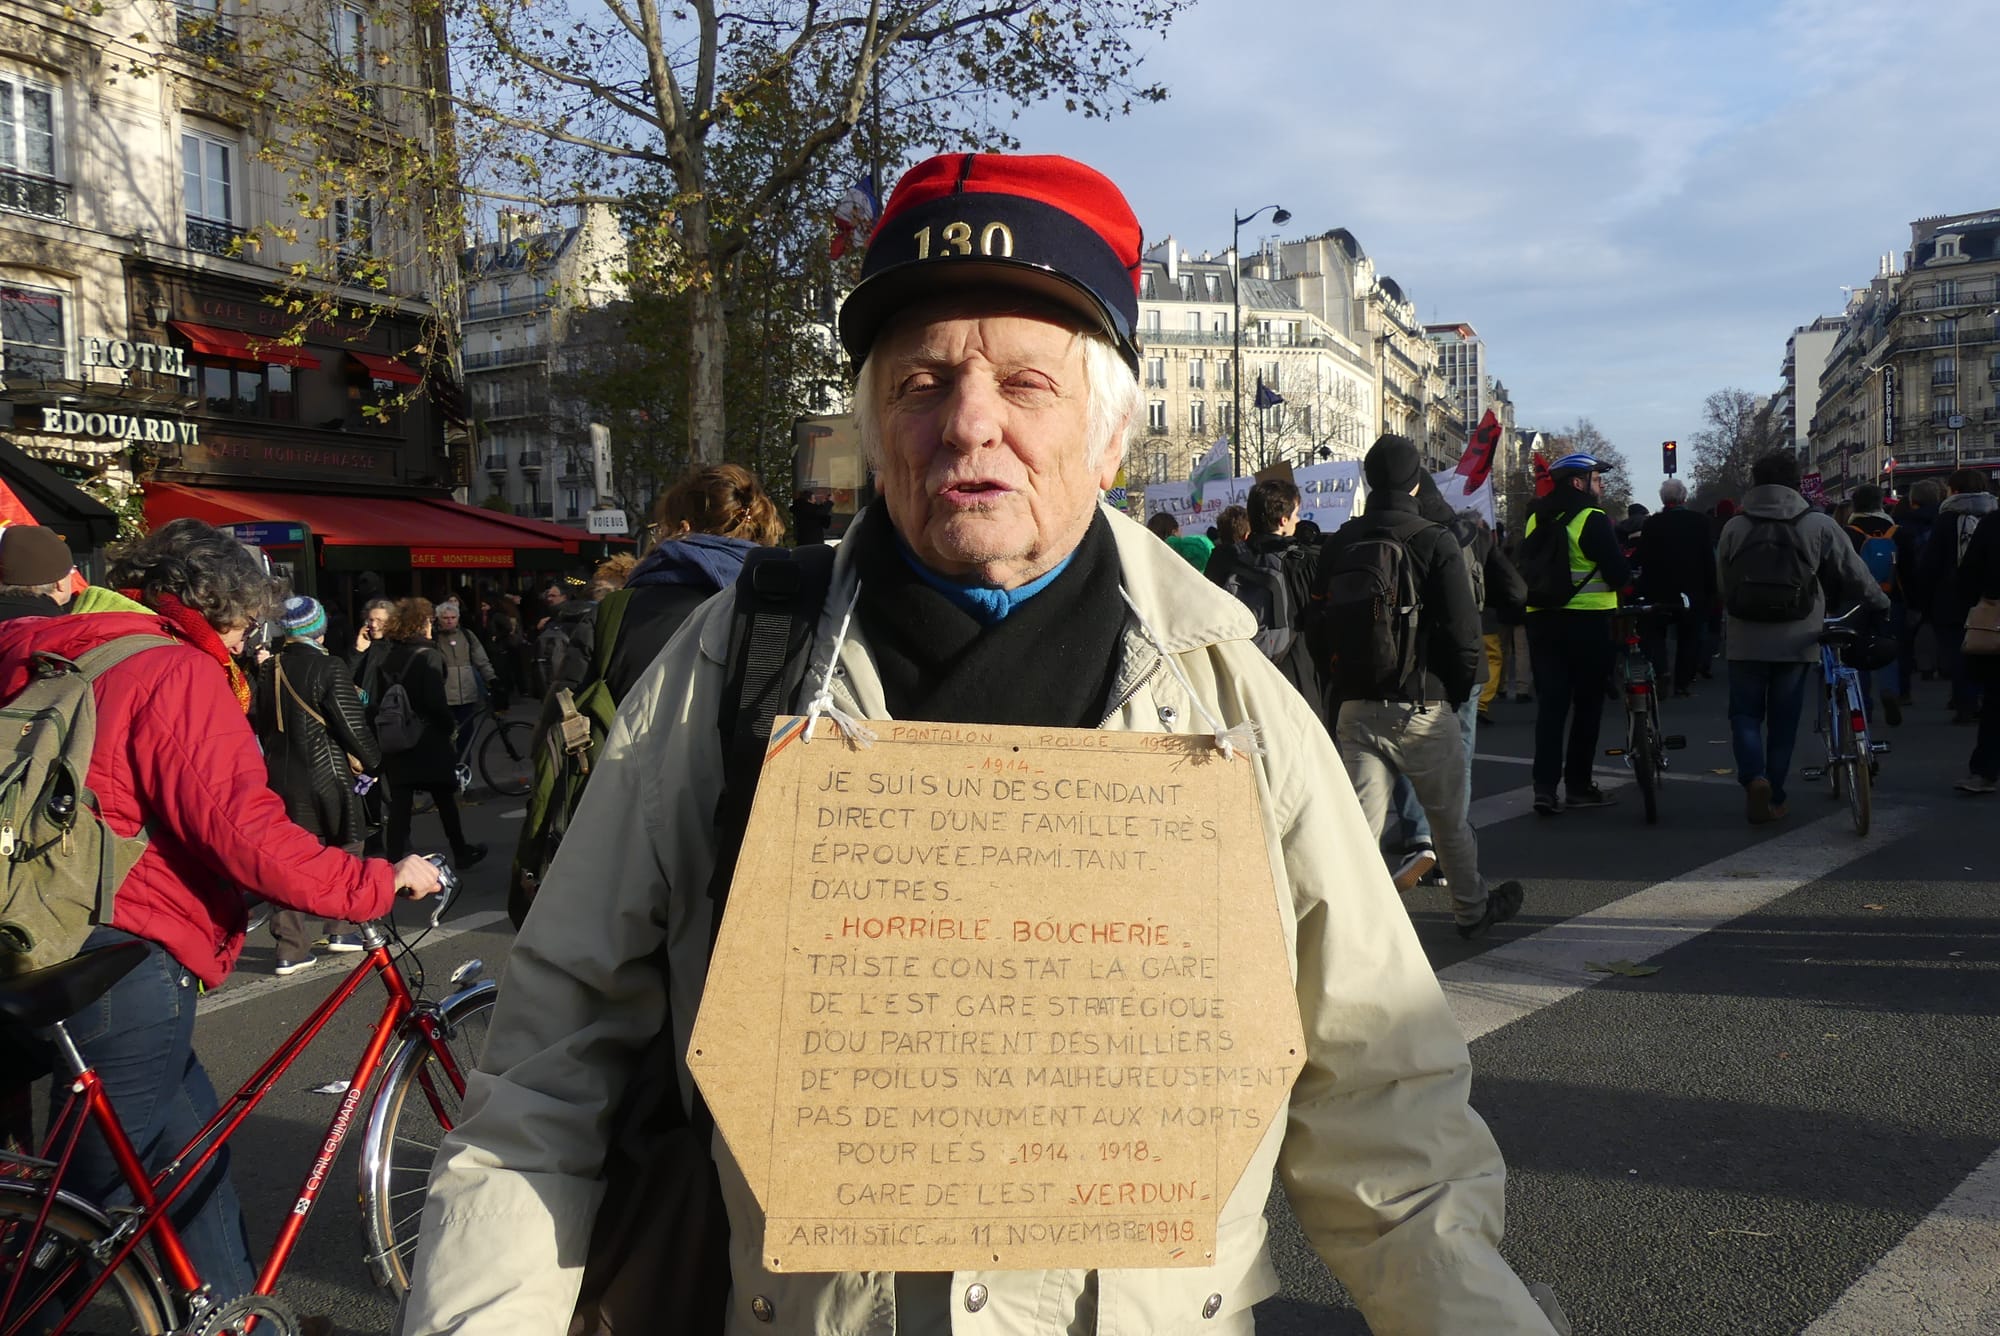 130
HOTEL
EDOUARD VI
CAFE MONTPARNASSE
CAFE MONTPARNASSE
VOIE BUS
PANTALON ROUGE
- 1914 -
JE SUIS UN DESCENDANT
DIRECT D'UNE FAMILLE TRÈS
ÉPROUVÉE PARMI TANT
D'AUTRES
- HORRIBLE BOUCHERIE -
TRISTE CONSTAT LA GARE
DE L'EST GARE STRATÉGIQUE
D'OU PARTIRENT DES MILLIERS
DE POILUS N'A MALHEUREUSEMENT
PAS DE MONUMENT AUX MORTS
POUR LES - 1914 - 1918 -
GARE DE L'EST - VERDUN -
ARMISTICE du 11 NOVEMBRE 1918
CYRIL GUIMARD